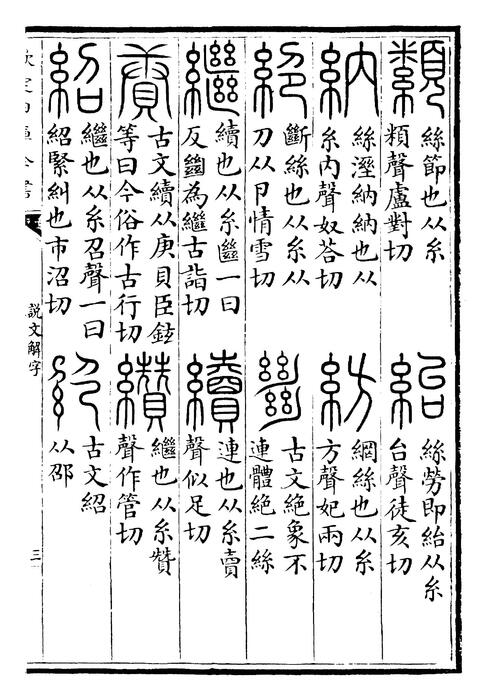 纇
絲節也从糸
頪聲盧對切
紿
絲勞即紿从糸
台聲徒亥切
納
絲溼納納也从
糸內聲奴荅切
紡
網絲也从糸
方聲妃兩切
絕
斷絲也从糸从
刀从卪情雪切
𢇍
古文絕象不
連體絕二絲
繼
續也从糸㡭一曰
反𢇍為繼古詣切
續
連也从糸賣
聲似足切
賡
古文續从庚貝臣鉉
等曰今俗作古行切
纘
繼也从糸贊
聲作管切
紹
繼也从糸召聲一曰
紹緊糾也市沼切
古文紹
从邵
欽定四庫全書
說文解字
三